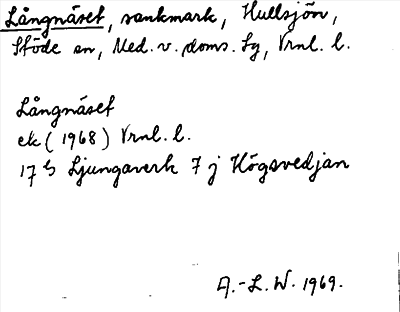 Långnäset, sankmark, Hullsjön,
Stöde sn, Med. v. doms. Sg, Vrnl. l.
Långnäset
ek (1968) Vrnl. l.
17 G Ljungaverk 7 j Högsvedjan
A.-L. W. 1969.